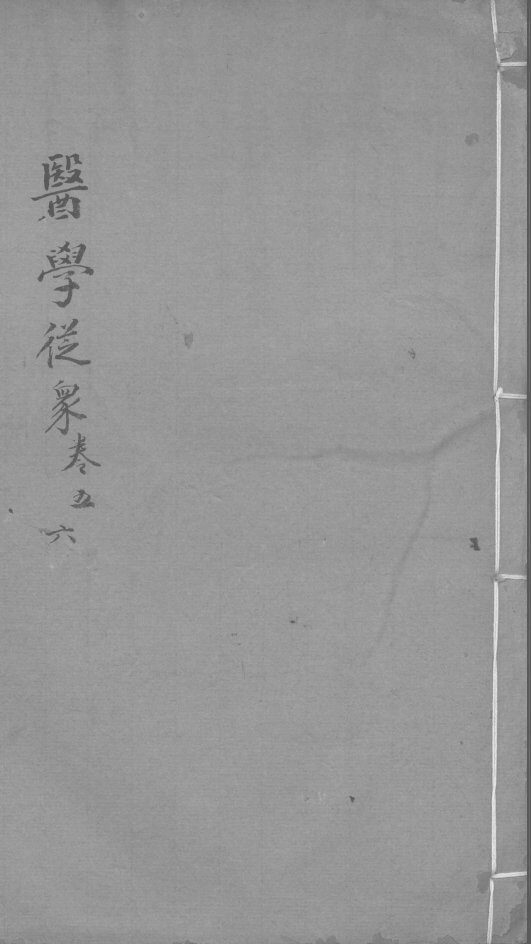 醫學從衆卷五六